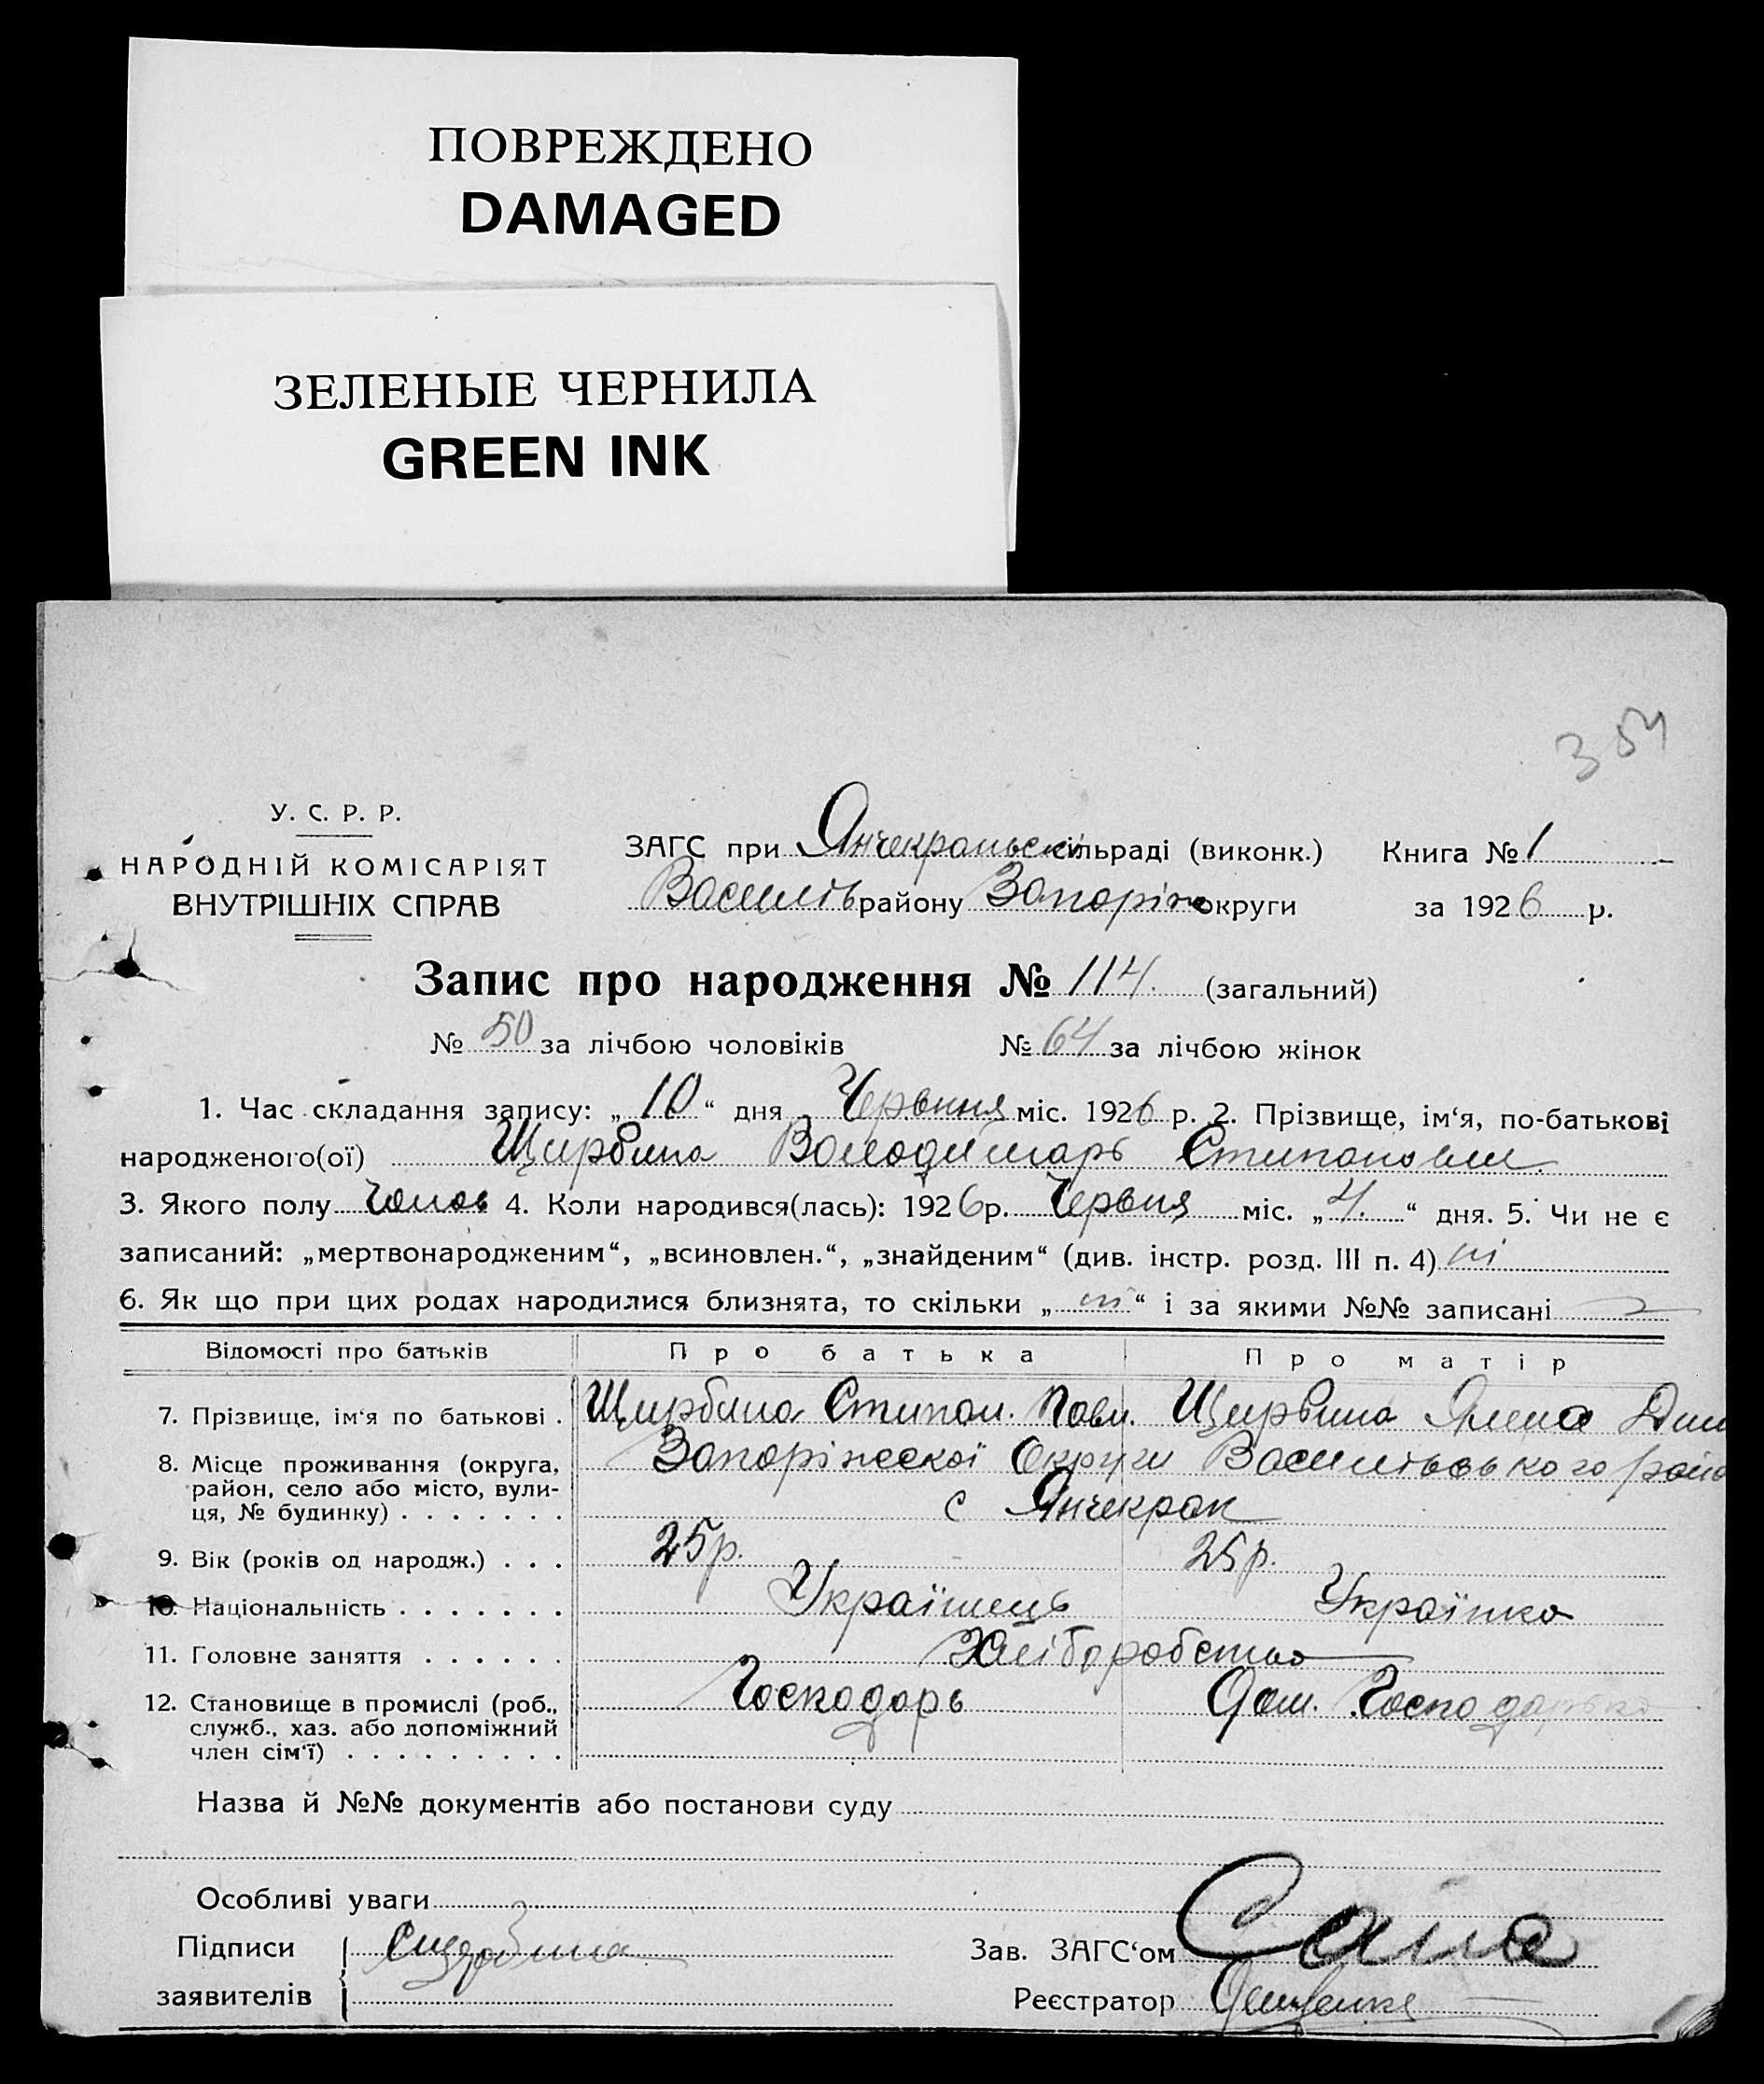 ПОВРЕЖДЕНО
DAMAGED
ЗЕЛЕНЫЕ ЧЕРНИЛА
GREEN INK
354
У. С. Р. Р.
НАРОДНІЙ КОМІСАРІЯТ
ВНУТРІШНІХ СПРАВ
ЗАГС при Янчекраньскі сільраді (виконк.) Книга № 1
Василів району Запоріж округи за 1926 р.
Запис про народження № 114. (загальний)
№ 50 за лічбою чоловіків № 64 за лічбою жінок
1. Час складання запису: „ 10 “ дня Червння міс. 1926 р. 2. Прізвище, ім‘я, по-батькові
народженого(ої) Щирбина Володимарь Стипанович
3. Якого полу Чолов 4. Коли народився(лась): 1926 р. Червня міс. „ 4. “ дня. 5. Чи не є
записаний: „мертвонародженим“, „всиновлен.“, „знайденим“ (див. інстр. розд. III п. 4) ні
6. Як що при цих родах народилися близнята, то скільки „ ні “ і за якими №№ записані
Відомості про батьків Про батька Про матір
7. Прізвище, ім‘я по батькові . Щирбина Стипан. Павл. Щирбина Ялена
8. Місце проживання (округа, Запоріжскої Округи Василівського райо
район, село або місто, вули-
ця, № будинку) . . . . . . . с Янчекрак
9. Вік (років од народж.) . . . 25 р. 25 р.
10. Національність . . . . . . . Українець Українка
11. Головне заняття . . . . . . Хліборобство
12. Становище в промислі (роб., Господарь Дом. Господарька
служб., хаз. або допоміжний
член сім‘ї) . . . . . . . . .
Назва й №№ документів або постанови суду
Особливі уваги
Підписи
заявителів
Зав. ЗАГС‘ом
Реєстратор